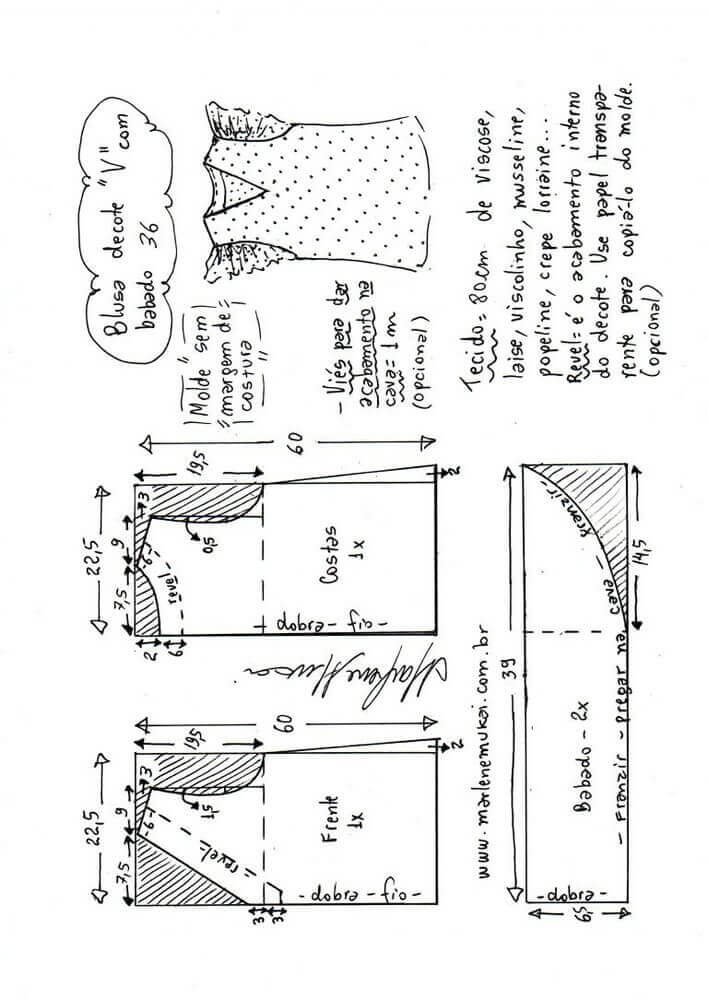 Blusa decote "V" com
babado 36
"Molde sem
margem de
costura"
- Viés para dar
acabamento na
cava = 1 m
(opcional)
Tecido = 80cm de viscose,
laise, viscolinho, musseline,
popeline, crepe lorraine...
Revel = é o acabamento interno
do decote. Use papel transpa-
rente para copiá-lo do molde.
(opcional)
22,5
7,5
9
3
-6-
19,5
1,5
revel-
60
Frente
1x
- dobra - fio -
3
3
2
22,5
7,5
9
3
-6-
19,5
0,5
revel
60
Costas
1x
dobra - fio -
2
6
2
Marlene Mukai
www.marlenemukai.com.br
39
-dobra-
6,5
Babado - 2x
- Franzir - pregar na cava - franzir -
14,5